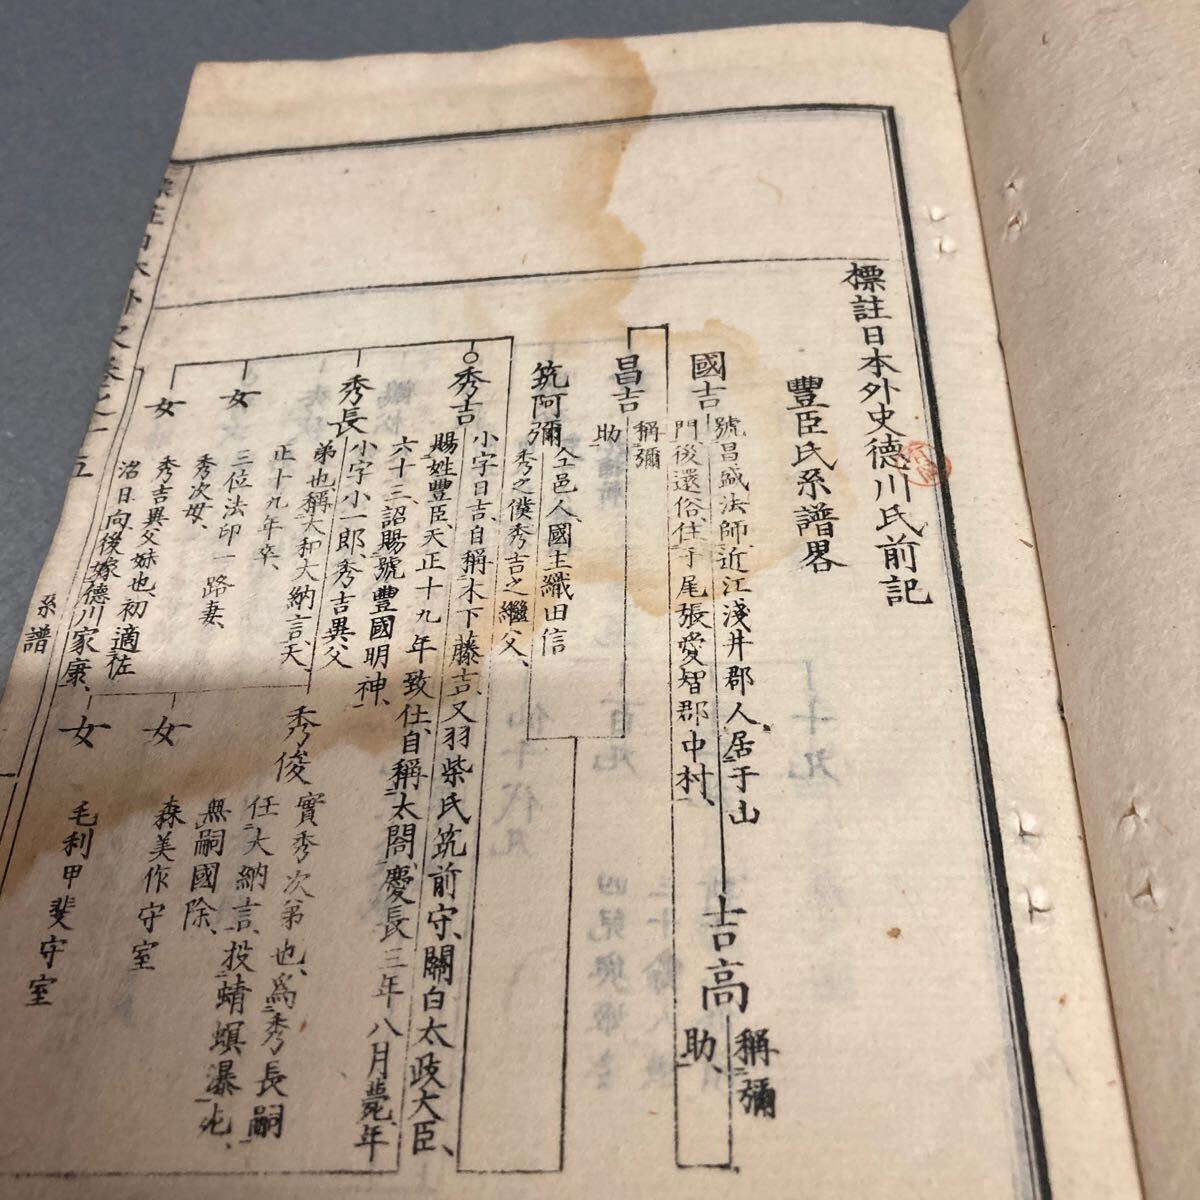 標註日本外史德川氏前記
豐臣氏系譜畧
國吉
號昌盛法師近江淺井郡人居于山
門後還俗住于尾張愛智郡中村
吉高
稱彌
助
昌吉
稱彌
助
筑阿彌
仝邑人國主織田信
秀之僕秀吉之繼父
秀吉
小字日吉自稱木下藤吉又羽柴氏筑前守關白太政大臣
賜姓豐臣天正十九年致仕自稱太閤慶長三年八月薨年
六十三詔賜號豐國明神
秀長
小字小一郎秀吉異父
弟也稱大和大納言天
正十九年卒
秀俊
實秀次弟也爲秀長嗣
任大納言投蜻螟瀑死
無嗣國除
女
森美作守室
女
毛利甲斐守室
女
三位法印一路妻
秀次母
女
秀吉異父妹也初適佐
治日向後嫁德川家康
標註日本外史卷之十五
系譜